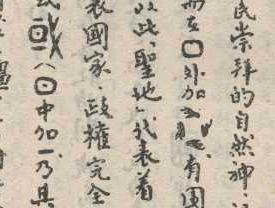 民崇拜的自然神
而在口外加有围
此、聖地、代表着
表國家、政權完全
或(口中加一乃具
疆